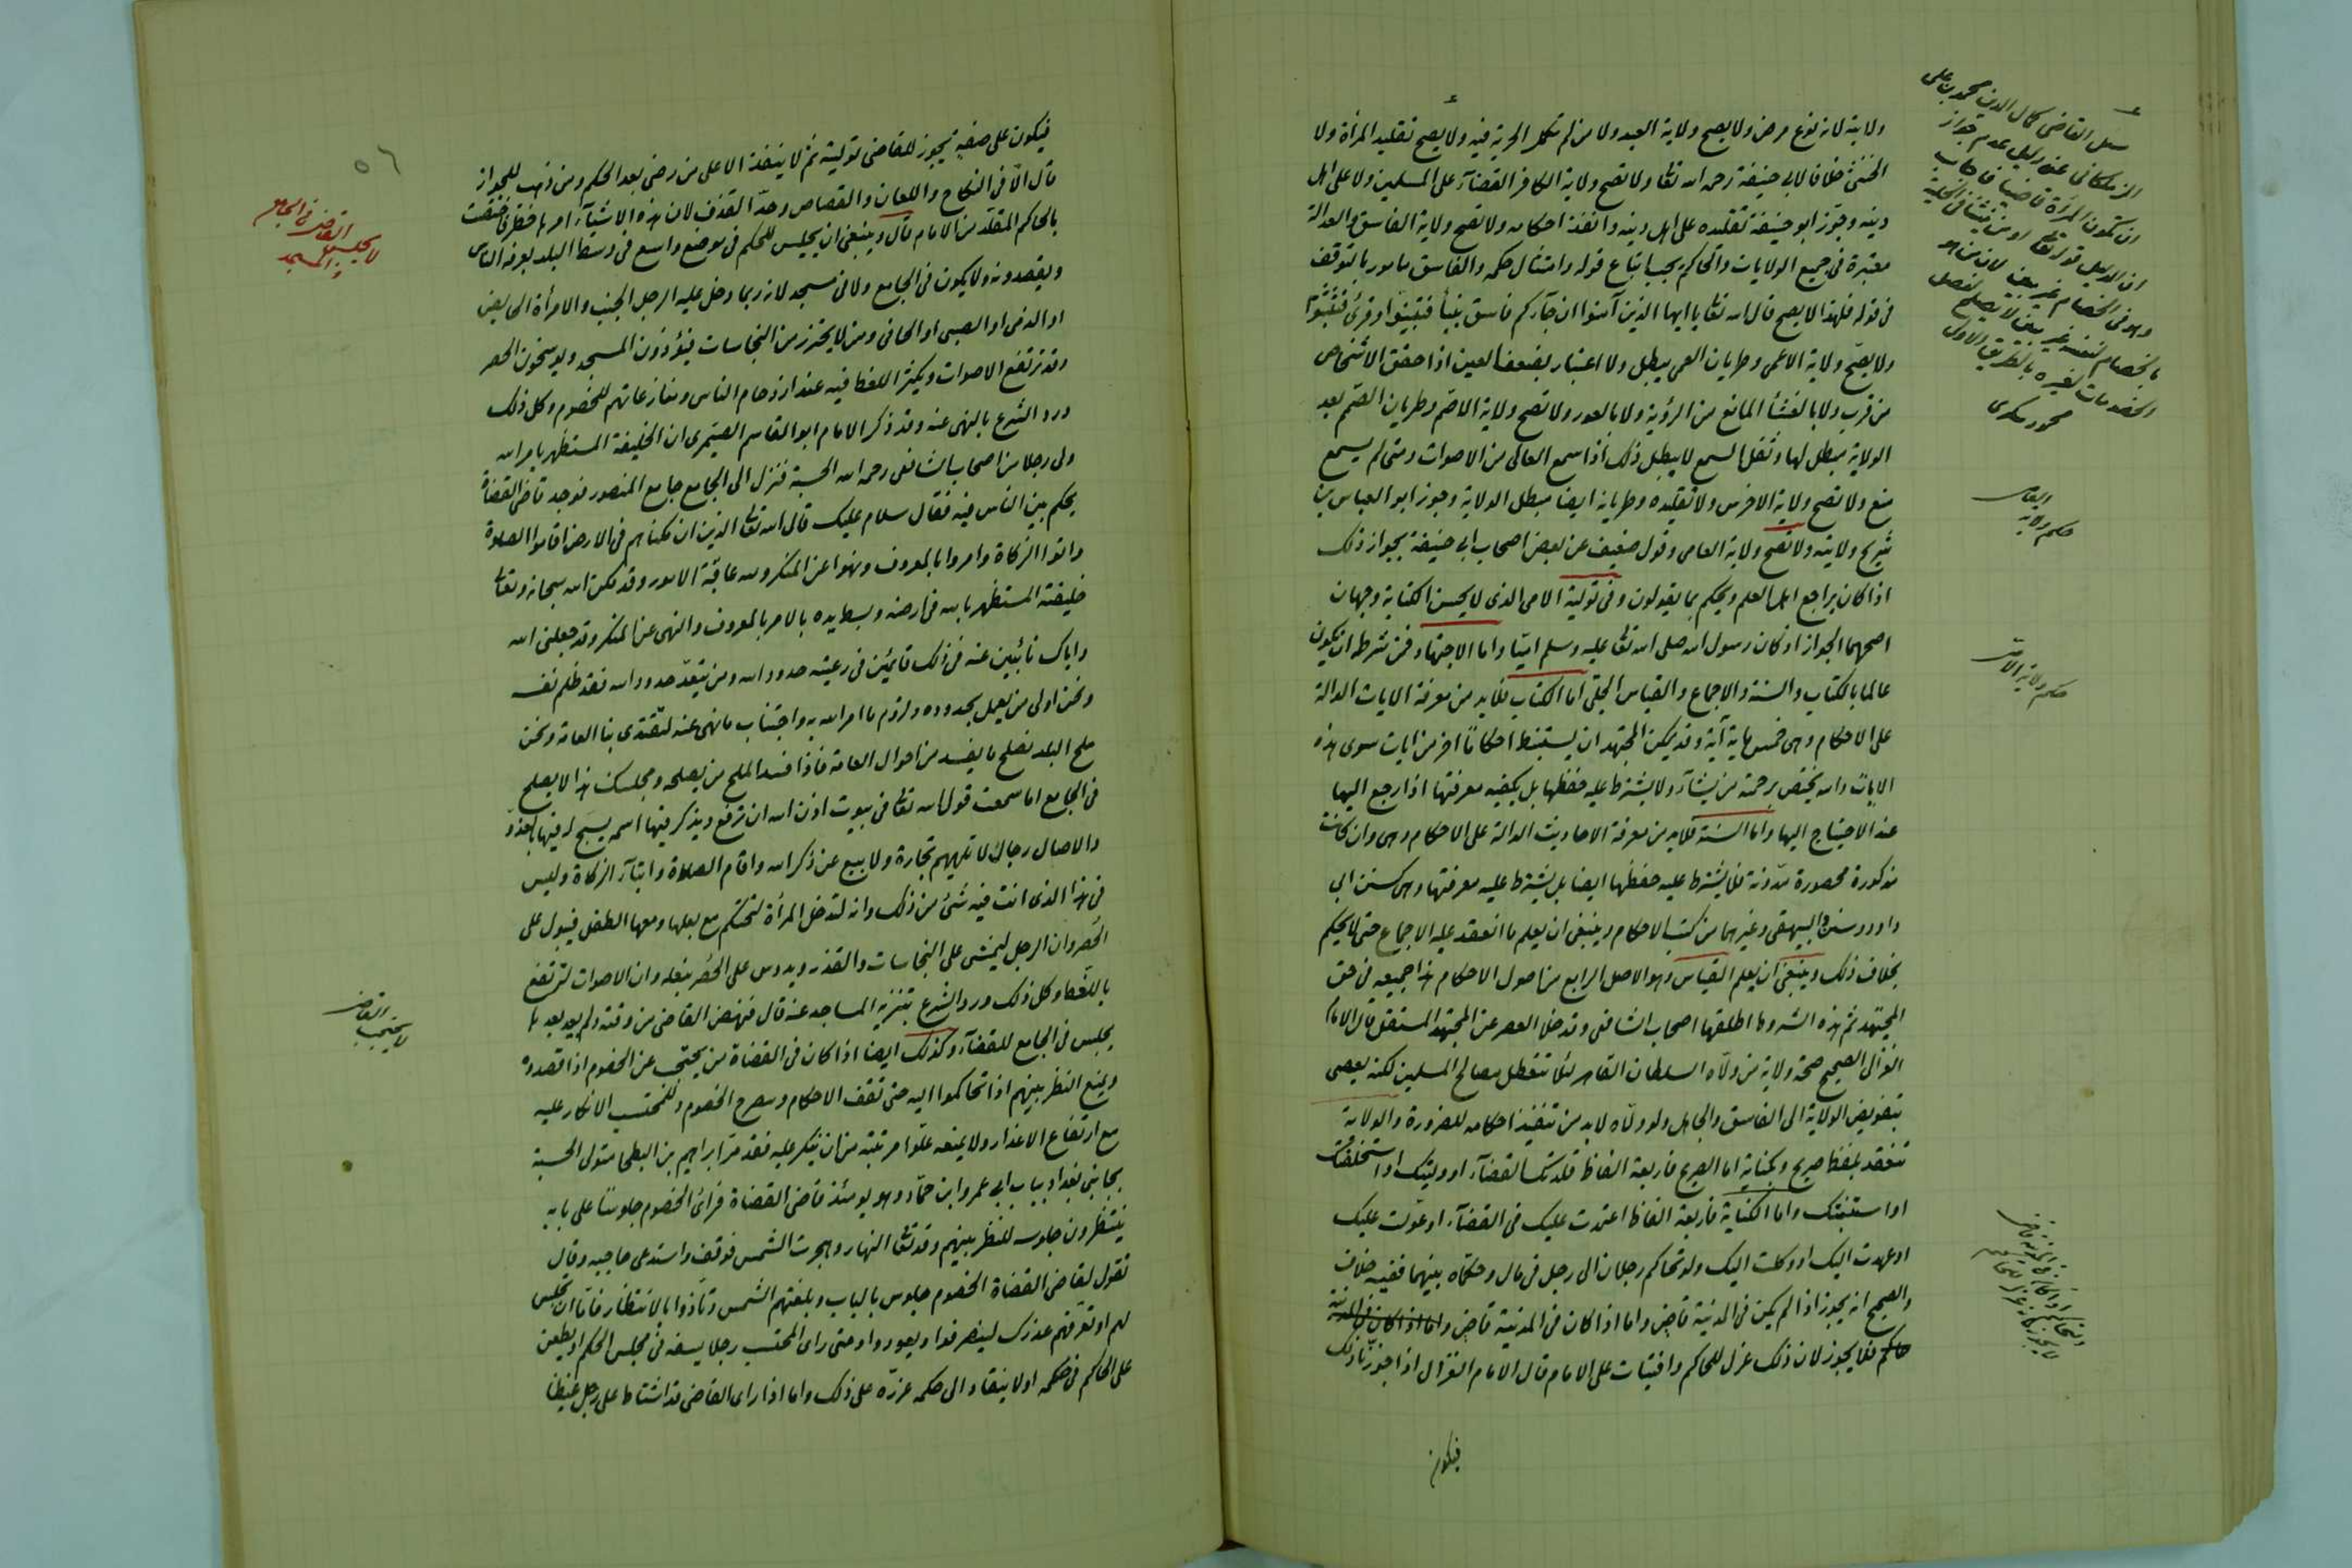 ولاية لانه نوع مرض ولا يصح ولاية العبد ولا من لم تكمل الحرية فيه ولا يصح تقليد المرأة ولا
الخنثى خلافا لابي حنيفة رحمه الله تعا ولا تصح ولاية الكافر القضآء على المسلمين ولا على اهل
دينه وجوز ابو حنيفة تقليده على اهل دينه وانفذ احكامه ولا تصح ولاية الفاسق والعدالة
معتبرة في جميع الولايات والحاكم يجب اتباع قوله وامتثال حكمه والفاسق مامور بالتوقف
في قوله فلهذا لا يصح قال الله تعا يا ايها الذين آمنوا ان جآءكم فاسق بنبأ فتبينوا وقرئ فتثبتوا
ولا يصح ولاية الاعمى وطريان العمى يبطل ولا اعتبار بضعف العين اذا حقق الاشخاص
من قرب ولا بالغشأ المانع من الرؤية ولا بالعور ولا تصح ولاية الاصم وطريان الصمم بعد
الولاية مبطل لها وثقل السمع لا يبطل ذلك اذا سمع العالى من الاصوات ومتى لم يسمع
منع ولا تصح ولاية الاخرس ولا تقليده وطريانه ايضا مبطل الولاية وجوز ابو العباس بن
شريح ولايته ولا تصح ولاية العامى وقول ضعيف عن بعض اصحاب ابى حنيفة بجواز ذلك
اذا كان يراجع اهل العلم ويحكم بما يقولون وفى تولية الامى الذى لا يحسن الكتابة وجهان
اصحهما الجواز اذ كان رسول الله صلى الله تعا عليه وسلم اميا واما الاجتهاد فمن شرطه ان يكون
عالما بالكتاب والسنة والاجماع والقياس الجلى اما الكتاب فلابد من معرفة الايات الدالة
على الاحكام وهى خمس ماية آية وقد يمكن المجتهد ان يستنبط احكاما اخر من ايات سوى هذه
الايات والله يختص برحمته من يشآء ولا يشترط عليه حفظها بل يكفيه معرفتها اذا رجع اليها
عند الاحتياج اليها واما السنة فلابد من معرفة الاحاديث الدالة على الاحكام وهى وان كانت
مذكورة محصورة مدونة فلا يشترط عليه حفظها ايضا بل يشترط عليه معرفتها وهى كسنن ابى
داود وسنن البيهقى وغيرهما من كتب الاحكام وينبغى ان يعلم ما انعقد عليه الاجماع حتى لا يحكم
بخلاف ذلك وينبغى ان يعلم القياس وهو الاصل الرابع من اصول الاحكام هذا جميعه فى حق
المجتهد ثم هذه الشروط اطلقها اصحاب الشافعى وقد خلا العصر عن المجتهد المستقل قال الامام
الغزالى الصحيح صحة ولاية من ولاه السلطان القاهر لئلا تتعطل مصالح المسلمين لكنه يعصى
بتفويض الولاية الى الفاسق والجاهل ولو ولاه لابد من تنفيذ احكامه للضرورة والولاية
تنعقد بلفظ صريح وكناية اما الصريح فاربعة الفاظ قلدتك القضآء او وليتك او استخلفتك
او استنبتك واما الكناية فاربعة الفاظ اعتمدت عليك فى القضآء او عولت عليك
او عهدت اليك او وكلت اليك ولو تحاكم رجلان الى رجل فى مال وحكماه بينهما ففيه خلاف
والصحيح انه يجوز اذا لم يكن فى المدينة قاض واما اذا كان فى المدينة قاض واما اذا كان فى المدينة
حاكم فلا يجوز لان ذلك عزل للحاكم وافتيات على الامام قال الامام الغزالى اذا جوزنا ذلك
فيكون
سئل القاضى كمال الدين محمد بن على
الزملكانى عن دليل عدم جواز
ان تكون المرأة قاضيا فاجاب
ان الدليل قوله تعا اومن ينشأ فى الحلية
وهو فى الخصام غير مبين لان من هو
بالخصام لنفسه غير مبين لا يصلح لفصل
الخصومات لغيره بالطريق الاولى
محمود شكرى
حكم ولاية
حكم ولاية الامى
فيكون على صفة يجوز للقاضى توليته ثم لا ينفذ الا على من رضى بعد الحكم ومن ذهب للجواز
قال الا فى النكاح واللعان والقصاص وحد القذف لان هذه الاشيآء امرها خطر فاختصت
بالحاكم المقلد من الامام قال وينبغى ان يجلس للحكم فى موضع واسع فى وسط البلد يعرفه الناس
ويقصدونه ولا يكون فى الجامع ولا فى مسجد لانه ربما دخل عليه الرجل الجنب والامرأة الحايض
او الذمى او الصبى او الحافى ومن لا يحترز من النجاسات فيؤذون المسجد ويوسخون الحصر
وقد ترتفع الاصوات ويكثر اللغط فيه عند ازدحام الناس ومنازعاتهم للخصوم وكل ذلك
ورد الشرع بالنهى عنه وقد ذكر الامام ابو القاسم الصيمرى ان الخليفة المستظهر بامر الله
ولى رجلا من اصحاب الشافعى رحمه الله الحسبة فنزل الى الجامع جامع المنصور فوجد قاضى القضاة
يحكم بين الناس فيه فقال سلام عليك قال الله تعا الذين ان مكناهم فى الارض اقاموا الصلاة
واتوا الزكاة وامروا بالمعروف ونهوا عن المنكر ولله عاقبة الامور وقد مكن الله سبحانه وتعا
خليفته المستظهر بالله فى ارضه وبسط يده بالامر بالمعروف والنهى عن المنكر وقد جعلنى الله
واياك نائبين عنه فى ذلك قائمين فى رعيته حدود الله ومن يتعد حدود الله فقد ظلم نفسه
ونحن اولى من يعمل بحدوده ولزوم ما امر الله به واجتناب ما نهى عنه لتقتدى بنا العامة ونحن
ملح البلد نصلح ما يفسد من احوال العامة فاذا فسد الملح من يصلحه ومجلسك هذا لا يصلح
فى الجامع اما سمعت قول الله تعا فى بيوت اذن الله ان ترفع ويذكر فيها اسمه يسبح له فيها بالغدو
والاصال رجال لا تلهيهم تجارة ولا بيع عن ذكر الله واقام الصلاة وايتآء الزكاة وليس
فى هذا الذى انت فيه شئ من ذلك وانه لتدخل المرأة لتحتكم مع بعلها ومعها الطفل فيبول على
الحصر وان الرجل ليمشى على النجاسات والقذر ويدوس على الحصر بنعله وان الاصوات لترتفع
باللغط وكل ذلك ورد الشرع بتنزيه المساجد عنه قال فنهض القاضى من وقته ولم يعد بعدها
يجلس فى الجامع للقضآء وكذلك ايضا اذا كان فى القضاة من يحتجب عن الخصوم اذا قصدوه
ويمنع النظر بينهم اذا تحاكموا اليه حتى تقف الاحكام و الخصوم وللمحتسب الانكار عليه
مع ارتفاع الاعذار ولا يمنعه علو مرتبته من ان ينكر عليه فقد مر ابراهيم بن البطحا متولى الحسبة
بجانبى بغداد بباب ابى عمرو ابن حماد وهو يومئذ قاضى القضاة فرأى الخصوم جلوسا على بابه
ينتظرون جلوسه للنظر بينهم وقد تعا النهار وهجرت الشمس فوقف واستدعى حاجبه وقال
تقول لقاضى القضاة الخصوم جلوس بالباب وبلغتهم الشمس وتأذوا بالانتظار فاما ان تجلس
لهم او تعرفهم عذرك لينصرفوا ويعودوا ومتى راى المحتسب رجلا يسفه فى مجلس الحكم او يطعن
على الحاكم فى حكمه او لا ينقاد الى حكمه عزره على ذلك واما اذا راى القاضى قد اشتاط على رجل غيظا
٥٦
لا يجلس القاضى فى الجامع
والمسجد
القاضى
لا يحتجب